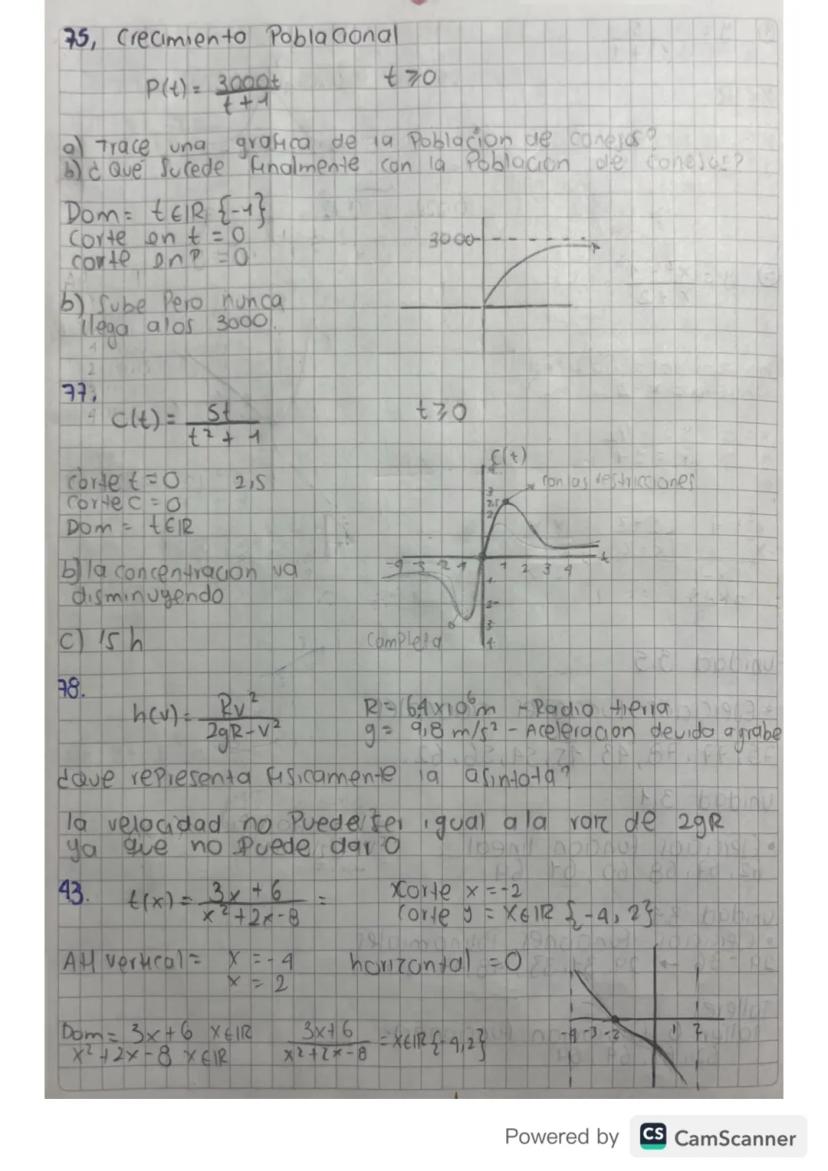 75, Crecimiento Poblacional
P(t) = 3000t / t + 1    t ≥ 0
a) Trace una grafica de la Poblacion de conejos?
b) ¿ Qué Sucede finalmente con la Poblacion de conejos?
Dom = t ∈ IR {-1}
corte en t = 0
corte en P = 0
3000
b) Sube Pero nunca
llega a los 3000.
77,
C(t) = 5t / t² + 1    t ≥ 0
C(t)
corte t = 0    2,5
con las restricciones
corte c = 0
Dom = t ∈ IR
3
2,5
2
-4 -3 -2 -1 1 2 3 4 t
b) la concentracion va
disminuyendo
c) 15 h
completa
78.
h(v) = Rv² / 2gR - v²    R = 6,4 x 10⁶ m - Radio tierra
g = 9,8 m/s² - Aceleracion devido a grabe
¿que representa fisicamente la asintota?
la velocidad no Puede ser igual a la raiz de 2gR
ya que no puede dar 0
43. t(x) = 3x + 6 / x² + 2x - 8 =    xcorte x = -2
corte y = x ∈ IR {-4, 2}
AH vertical = x = -4    horizontal = 0
x = 2
Dom = 3x + 6 x ∈ IR    3x + 6 / x² + 2x - 8 = x ∈ IR {-4, 2}
x² + 2x - 8 x ∈ IR
-4 -3 -2 1 2
Powered by CS CamScanner